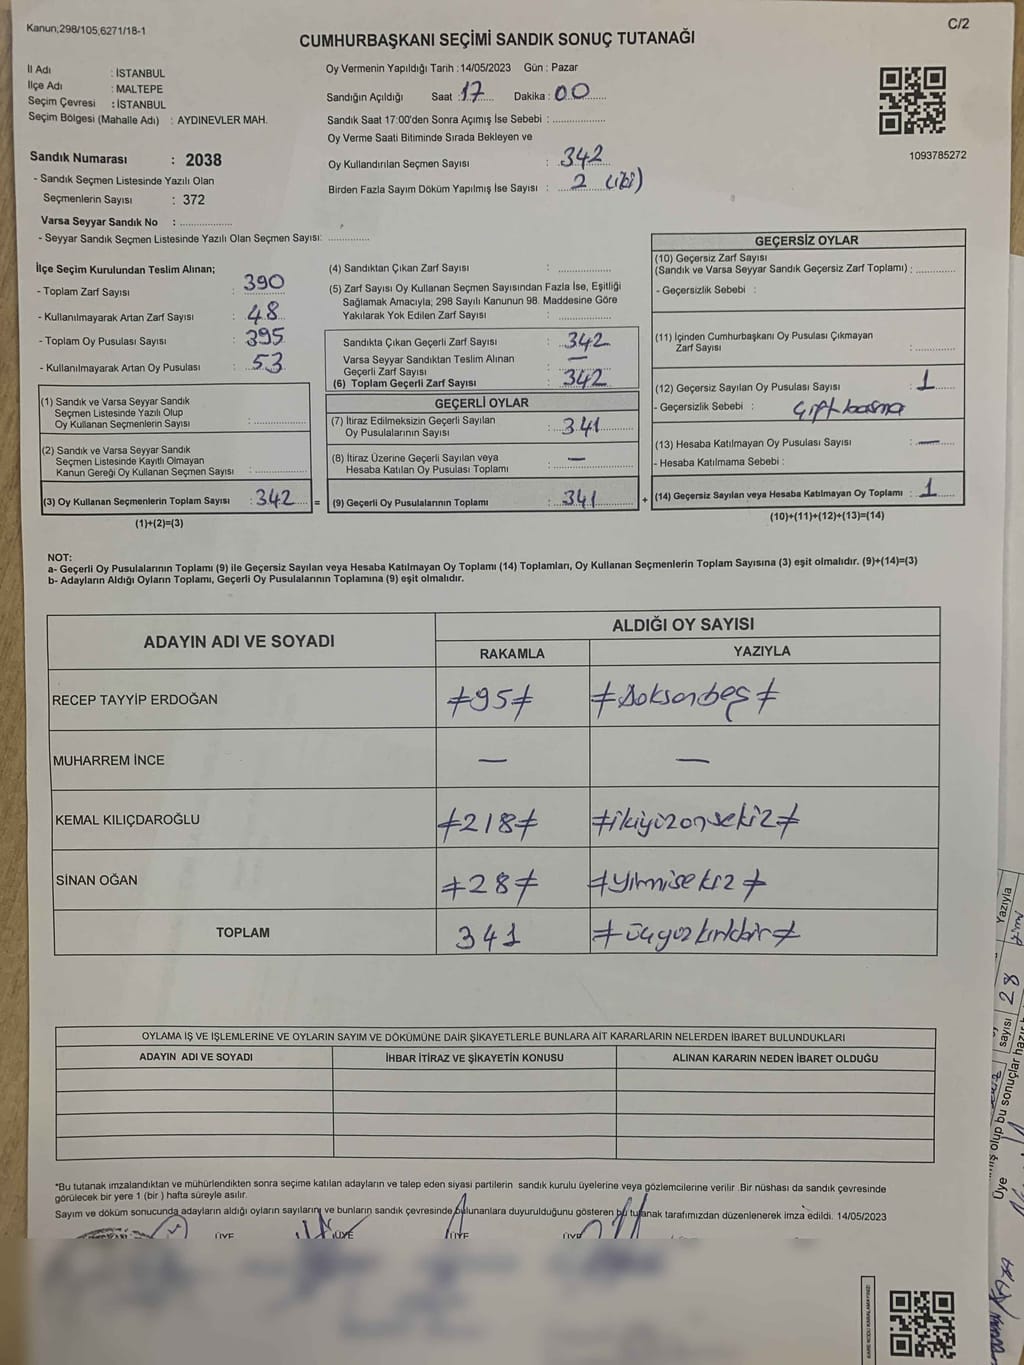 Kanun,298/105,6271/18-1
C/2
CUMHURBAŞKANI SEÇİMİ SANDIK SONUÇ TUTANAĞI
İl Adı : İSTANBUL
İlçe Adı : MALTEPE
Seçim Çevresi : İSTANBUL
Seçim Bölgesi (Mahalle Adı) : AYDINEVLER MAH.
Sandık Numarası : 2038
- Sandık Seçmen Listesinde Yazılı Olan
Seçmenlerin Sayısı : 372
Varsa Seyyar Sandık No : ....................
- Seyyar Sandık Seçmen Listesinde Yazılı Olan Seçmen Sayısı: ................
Oy Vermenin Yapıldığı Tarih : 14/05/2023 Gün : Pazar
Sandığın Açıldığı Saat : 17 Dakika : 00
Sandık Saat 17:00'den Sonra Açımış İse Sebebi : ....................
Oy Verme Saati Bitiminde Sırada Bekleyen ve
Oy Kullandırılan Seçmen Sayısı : 342
Birden Fazla Sayım Döküm Yapılmış İse Sayısı : 2 (iki)
1093785272
İlçe Seçim Kurulundan Teslim Alınan;
- Toplam Zarf Sayısı : 390
- Kullanılmayarak Artan Zarf Sayısı : 48
- Toplam Oy Pusulası Sayısı : 395
- Kullanılmayarak Artan Oy Pusulası : 53
(1) Sandık ve Varsa Seyyar Sandık
Seçmen Listesinde Yazılı Olup
Oy Kullanan Seçmenlerin Sayısı : ................
(2) Sandık ve Varsa Seyyar Sandık
Seçmen Listesinde Kayıtlı Olmayan
Kanun Gereği Oy Kullanan Seçmen Sayısı : ................
(3) Oy Kullanan Seçmenlerin Toplam Sayısı : 342 =
(1)+(2)=(3)
(4) Sandıktan Çıkan Zarf Sayısı : ................
(5) Zarf Sayısı Oy Kullanan Seçmen Sayısından Fazla İse, Eşitliği
Sağlamak Amacıyla; 298 Sayılı Kanunun 98. Maddesine Göre
Yakılarak Yok Edilen Zarf Sayısı : ................
Sandıkta Çıkan Geçerli Zarf Sayısı : 342
Varsa Seyyar Sandıktan Teslim Alınan
Geçerli Zarf Sayısı : —
(6) Toplam Geçerli Zarf Sayısı : 342
GEÇERLİ OYLAR
(7) İtiraz Edilmeksizin Geçerli Sayılan
Oy Pusulalarının Sayısı : 341
(8) İtiraz Üzerine Geçerli Sayılan veya
Hesaba Katılan Oy Pusulası Toplamı : —
(9) Geçerli Oy Pusulalarının Toplamı : 341 +
GEÇERSİZ OYLAR
(10) Geçersiz Zarf Sayısı
(Sandık ve Varsa Seyyar Sandık Geçersiz Zarf Toplamı) : ............
- Geçersizlik Sebebi :
(11) İçinden Cumhurbaşkanı Oy Pusulası Çıkmayan
Zarf Sayısı : ............
(12) Geçersiz Sayılan Oy Pusulası Sayısı : 1
- Geçersizlik Sebebi : Çift basma
(13) Hesaba Katılmayan Oy Pusulası Sayısı : —
- Hesaba Katılmama Sebebi :
(14) Geçersiz Sayılan veya Hesaba Katılmayan Oy Toplamı : 1
(10)+(11)+(12)+(13)=(14)
NOT:
a- Geçerli Oy Pusulalarının Toplamı (9) ile Geçersiz Sayılan veya Hesaba Katılmayan Oy Toplamı (14) Toplamları, Oy Kullanan Seçmenlerin Toplam Sayısına (3) eşit olmalıdır. (9)+(14)=(3)
b- Adayların Aldığı Oyların Toplamı, Geçerli Oy Pusulalarının Toplamına (9) eşit olmalıdır.
ADAYIN ADI VE SOYADI ALDIĞI OY SAYISI
RAKAMLA YAZIYLA
RECEP TAYYİP ERDOĞAN ≠95≠ ≠Doksanbeş≠
MUHARREM İNCE — —
KEMAL KILIÇDAROĞLU ≠218≠ ≠ikiyüzonsekiz≠
SİNAN OĞAN ≠28≠ ≠yirmisekiz≠
TOPLAM 341 ≠üçyüzkırkbir≠
OYLAMA İŞ VE İŞLEMLERİNE VE OYLARIN SAYIM VE DÖKÜMÜNE DAİR ŞİKAYETLERLE BUNLARA AİT KARARLARIN NELERDEN İBARET BULUNDUKLARI
ADAYIN ADI VE SOYADI İHBAR İTİRAZ VE ŞİKAYETİN KONUSU ALINAN KARARIN NEDEN İBARET OLDUĞU
*Bu tutanak imzalandıktan ve mühürlendikten sonra seçime katılan adayların ve talep eden siyasi partilerin sandık kurulu üyelerine veya gözlemcilerine verilir .Bir nüshası da sandık çevresinde
görülecek bir yere 1 (bir ) hafta süreyle asılır.
Sayım ve döküm sonucunda adayların aldığı oyların sayılarını ve bunların sandık çevresinde bulunanlara duyurulduğunu gösteren bu tutanak tarafımızdan düzenlenerek imza edildi. 14/05/2023
ÜYE ÜYE ÜYE ÜYE
Yazıyla
sayısı 28
olup bu sonuçlar
Üye